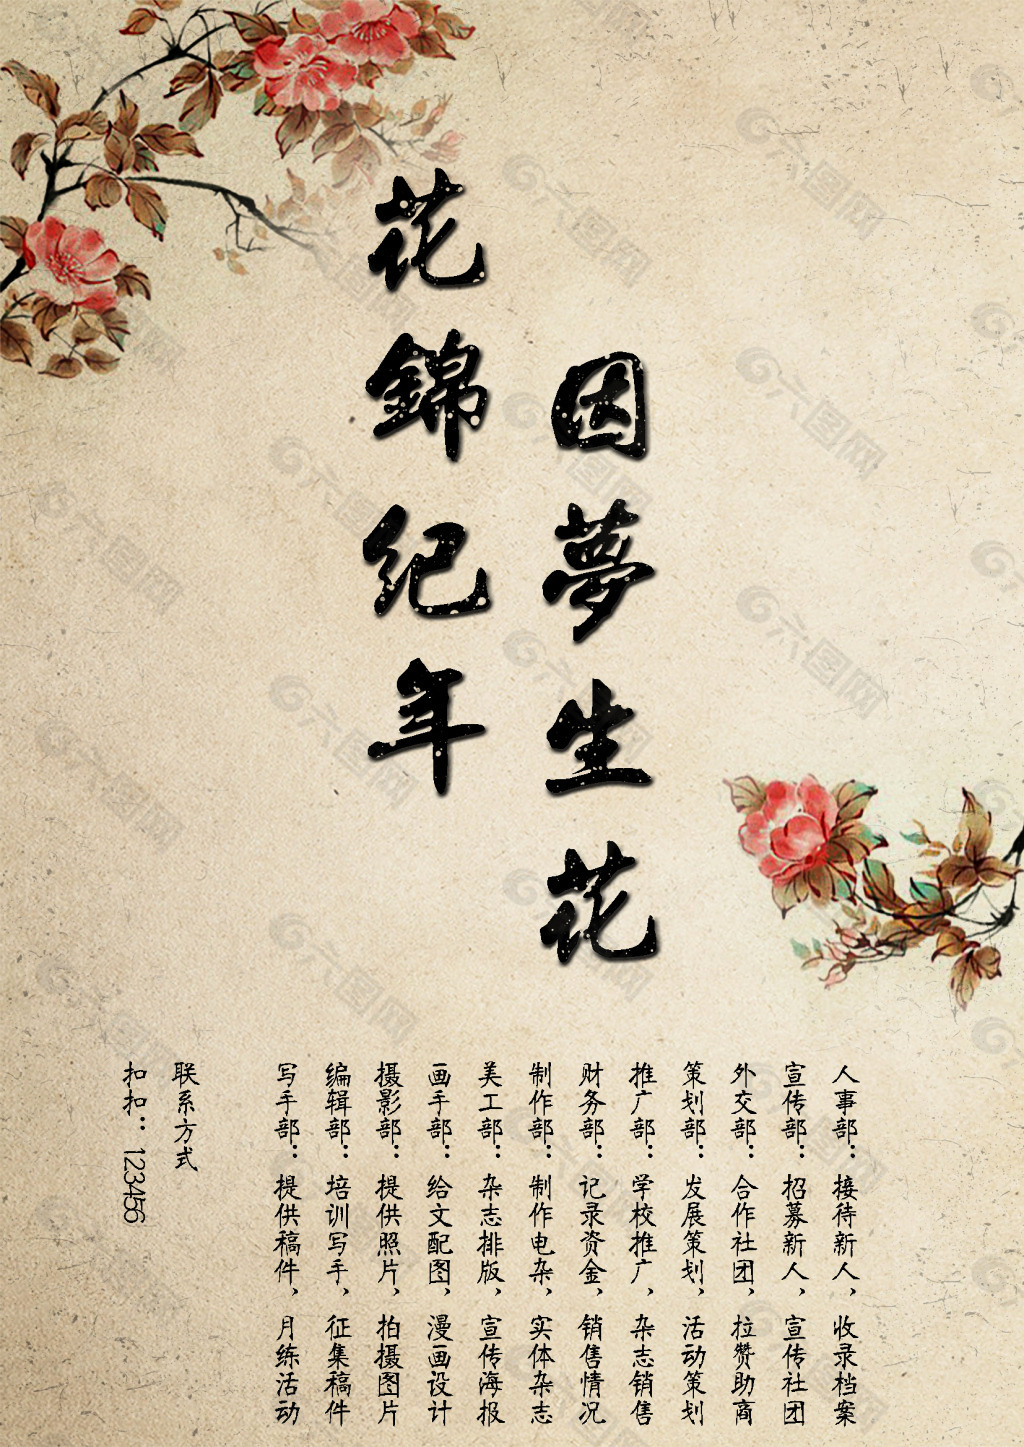 因夢生花
花錦纪年
人事部：接待新人，收录档案
宣传部：招募新人，宣传社团
外交部：合作社团，拉赞助商
策划部：发展策划，活动策划
推广部：学校推广，杂志销售
财务部：记录资金，销售情况
制作部：制作电杂，实体杂志
美工部：杂志排版，宣传海报
画手部：给文配图，漫画设计
摄影部：提供照片，拍摄图片
编辑部：培训写手，征集稿件
写手部：提供稿件，月练活动
联系方式
扣扣：123456
六图网